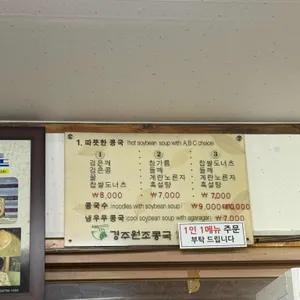 1. 따뜻한 콩국 (hot soybean soup with A,B,C choice)
① ② ③
검은깨 참기름 찹쌀도너츠
검은콩 들깨 들깨
꿀 계란노른자 계란노른자
찹쌀도너츠 흑설탕 흑설탕
₩8,000 ₩7,000 ₩7,000
콩국수 (noodles with soybean soup) ₩9,000
냉우무콩국 (cool soybean soup with agaragar) ₩7,000
경주원조콩국
1인 1메뉴 주문
부탁 드립니다